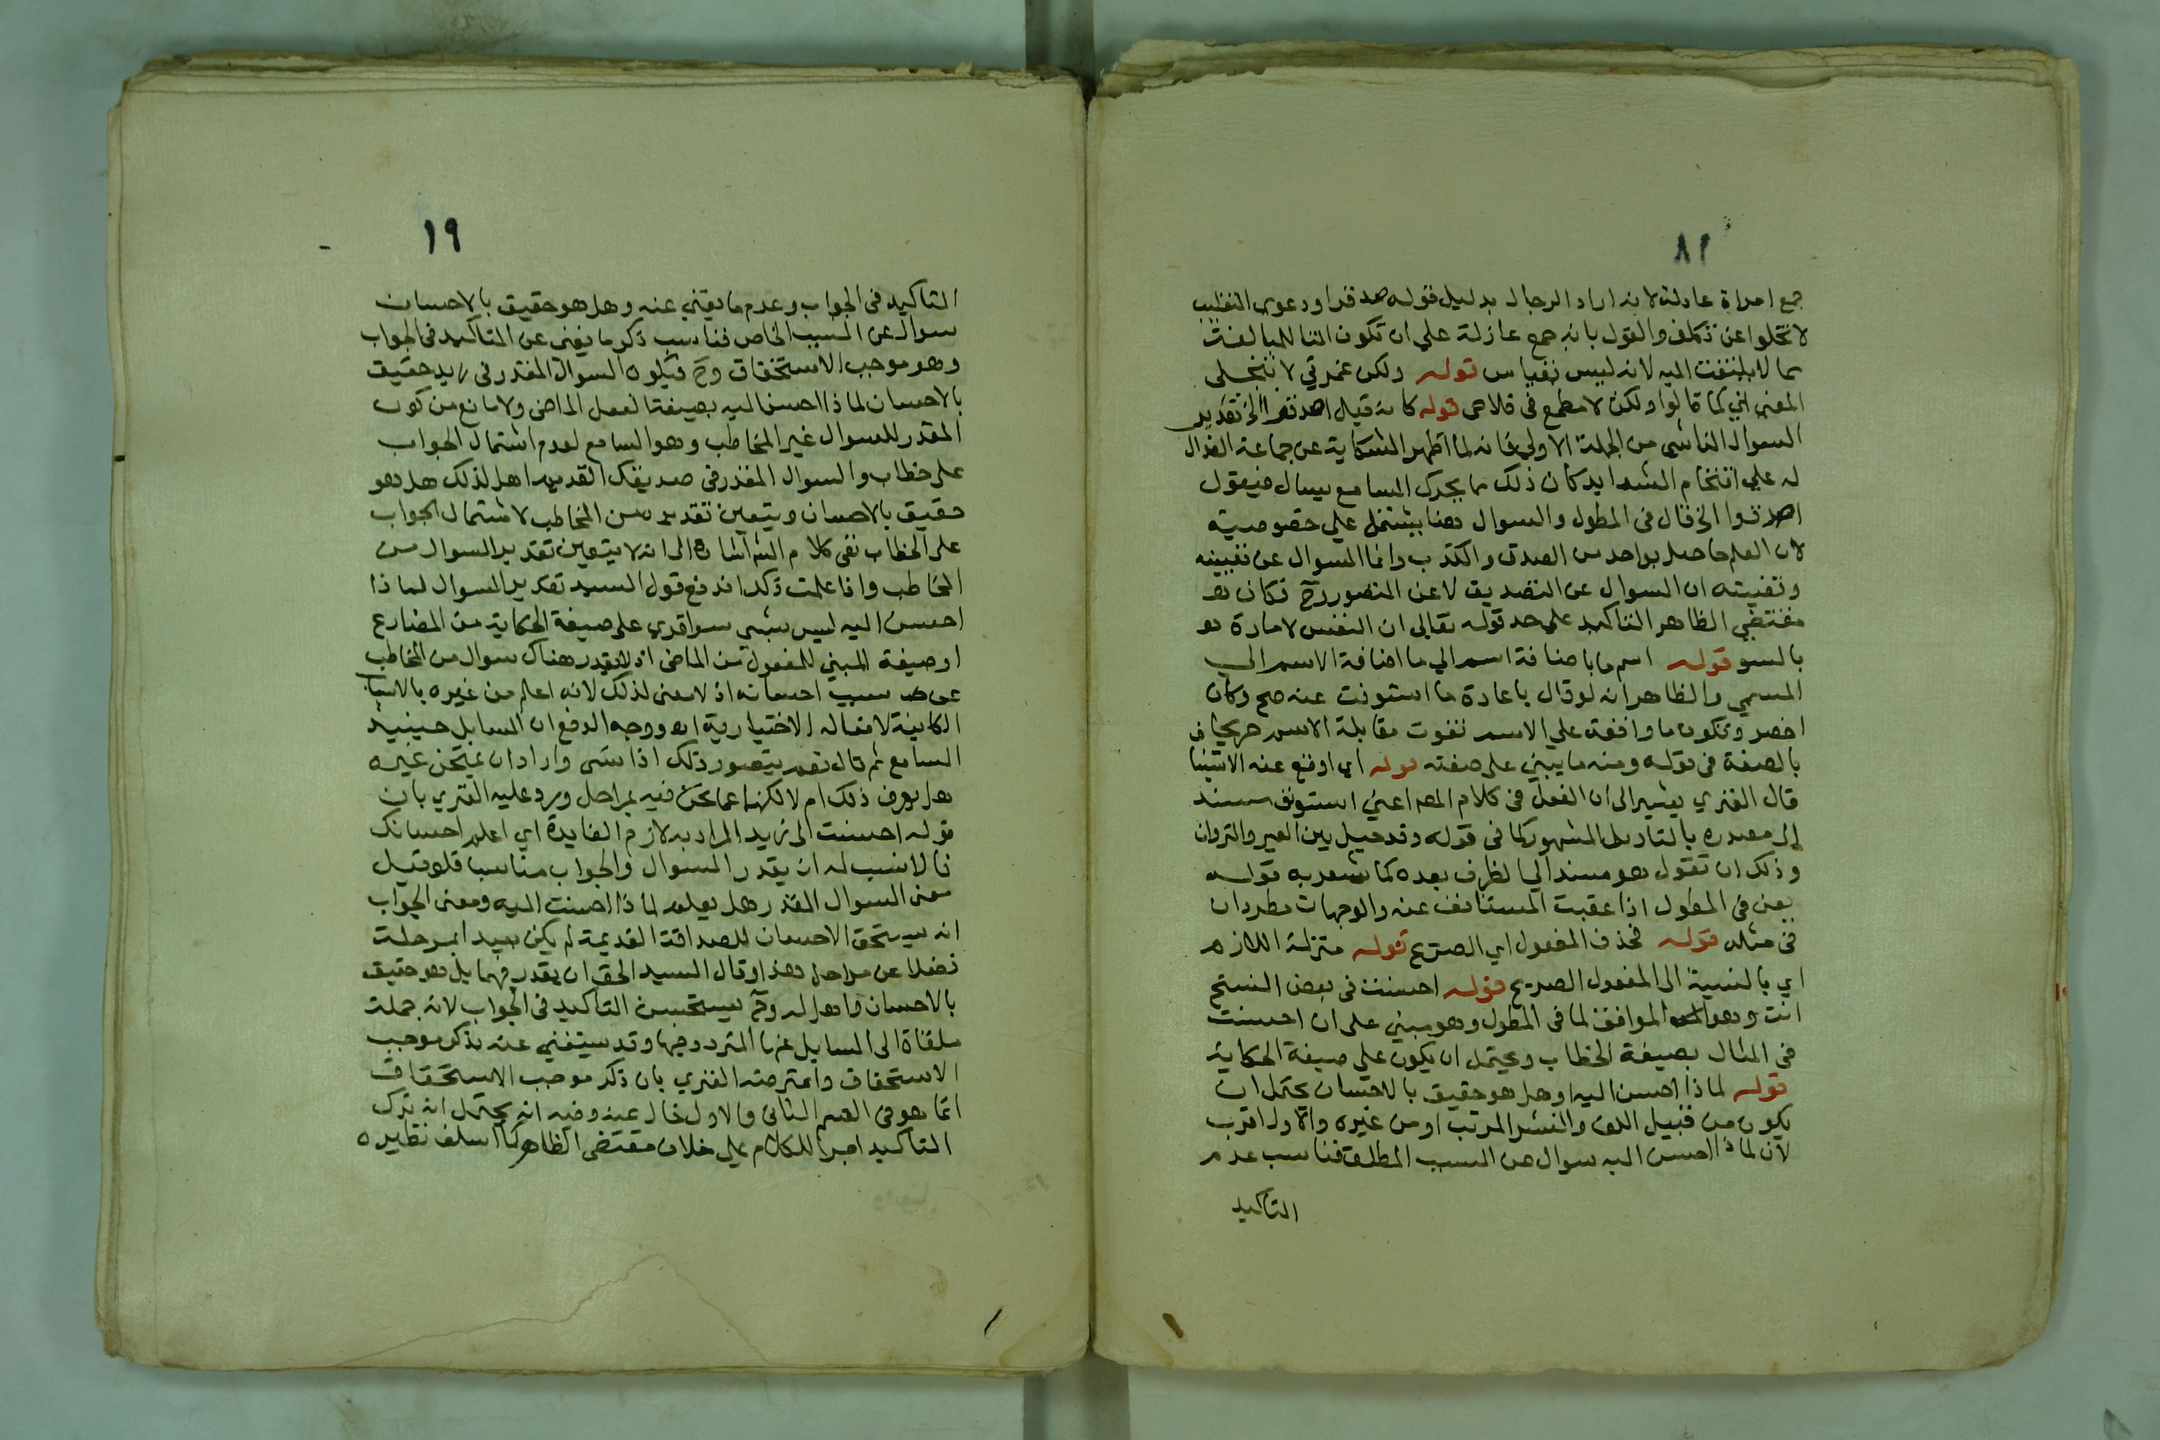 ٨١
جمع امراة عادلة لانه اراد الرجال بدليل قوله صدقوا ودعوى التغليب
لا تخلوا عن تكلف والقول بانه جمع عاذلة على ان تكون التا للمبالغة
مما لا يلتفت اليه لانه ليس بقياس قوله ولكن غمرتي لا تنجلي
المعنى انى كما قالوا ولكن لا مطمع فى فلاحى قوله كانه قيل اصدقوا الخ تقدير
السوال الناشى من الجملة الاولى فانه لما اظهر الشكاية عن جماعة العذال
له على اقتحام الشدايد كان ذلك مما يحرك السامع ليسال فيقول
اصدقوا الخ قال فى المطول والسوال هنا يشتمل على خصوصيته
لان العلم حاصل بواحد من الصدق والكذب وانما السوال عن تعيينه
وتقنيته ان السوال عن التصديق لا عن التصور وح فكان هو
مقتضى الظاهر التاكيد على حد قوله تعالى ان النفس لامارة هو
بالسو قوله اسم ما باضافة اسم الى ما اضافة الاسم الى
المسمى والظاهر انه لو قال باعادة ما استونف عنه صح وكان
اخصر وتكون ما واقفة على الاسم تفوت مقابلة الاسم
بالصفة فى قوله ومنه ما يبنى على صفته قوله اى اوقع عنه الاستينا
قال الفنرى يشير الى ان الفعل فى كلام المص اعنى استونف مسند
الى مصدره بالتاويل المشهور كما فى قوله وقد حيل بين العير والنزوان
وذلك ان تقول هو مسند الى الظرف بعده كما يشعر به قوله
يعنى فى المطول اذا عقبت المستانف عنه والوجهان مطردان
فى مثله قوله فحذف المفعول اى الصريح قوله منزلة اللازم
اى بالنسبة الى المفعول الصريح قوله احسنت فى بعض النسخ
انت وهو الموافق لما فى المطول وهو مبنى على ان احسنت
فى المثال بصيغة الخطاب ويحتمل ان يكون على صيغة الحكاية
قوله لماذا احسن اليه او هل هو حقيق بالاحسان يحتمل ان
يكون من قبيل اللف والنشر المرتب او من غيره والاول اقرب
لان لماذا احسن اليه سوال عن السبب المطلق فناسب عدم
التاكيد
١٩
التاكيد فى الجواب وعدم ما يغنى عنه وهل هو حقيق بالاحسان
سوال عن السبب الخاص فناسب ذكر ما يغنى عن التاكيد فى الجواب
وهو موجب الاستحقاق وح فيكون السوال المقدر فى زيد حقيق
بالاحسان لماذا احسن اليه بصيغة الفعل الماضى ولا مانع من كون
المقدر للسوال غير المخاطب وهو السامع لعدم اشتمال الجواب
على خطاب والسوال المقدر فى صديقك القديم اهل لذلك هل هو
حقيق بالاحسان ويتعين تقديره من المخاطب لاشتمال الجواب
على الخطاب ففى كلام الش اشارة الى انه لا يتعين تقدير السوال من
المخاطب واذا علمت ذلك اندفع قول السيد تقدير السوال لماذا
احسن اليه ليس بشى سوا قرى على صيغة الحكاية من المضارع
او صيغة المبنى للمفعول من الماضى اذ لا يقدر هناك سوال من المخاطب
عن سبب احسانه اذ لا معنى لذلك لانه اعلم من غيره بالاسباب
الكاينة لافعاله الاختيارية اه ووجه الدفع ان السايل حينيذ
السامع ثم قال نعم يتصور ذلك اذا نسى واراد ان يمتحن غيره
هل يعرف ذلك ام لا لكنهما عما نحن فيه بمراحل ورد عليه الفنرى بان
قوله احسنت الى زيد المراد به لازم الفايدة اى اعلم احسانك
فالانسب له ان يقدر السوال والجواب مناسبا فلو قيل
معنى السوال المقدر هل يعلم لماذا احسنت اليه ومعنى الجواب
انه يستحق الاحسان للصداقة القديمة لم يكن بعيدا بمرحلة
فضلا عن مراحل هذا وقال السيد الحق ان يقدر فيهما بل هو حقيق
بالاحسان واهل له وح يستحسن التاكيد فى الجواب لانه جملة
ملقاة الى السايل عنها المتردد فيها وقد يستغنى عنه بذكر موجب
الاستحقاق واعترضه الفنرى بان ذكر موجب الاستحقاق
انما هو فى القسم الثانى والاول خال عنه وفيه انه يحتمل انه ترك
التاكيد اجرا للكلام على خلاف مقتضى الظاهر كما اسلف نظيره